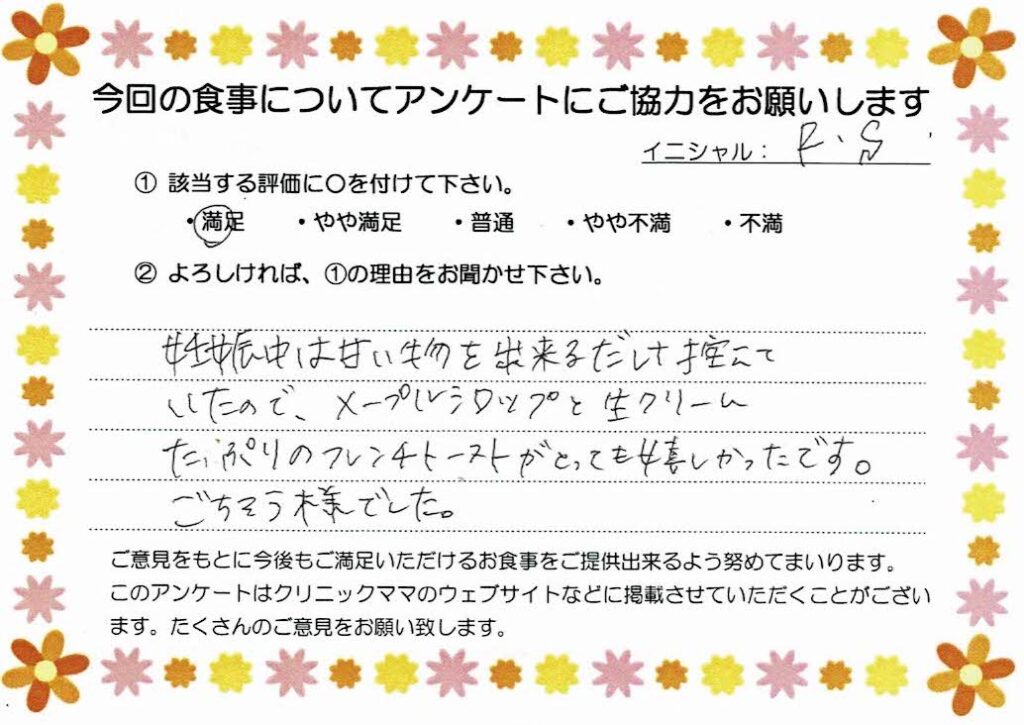 今回の食事についてアンケートにご協力をお願いします
イニシャル： R.S
① 該当する評価に○を付けて下さい。
・満足 ・やや満足 ・普通 ・やや不満 ・不満
② よろしければ、①の理由をお聞かせ下さい。
妊娠中は甘い物を出来るだけ控えて
いたので、メープルシロップと生クリーム
たっぷりのフレンチトーストがとっても嬉しかったです。
ごちそう様でした。
ご意見をもとに今後もご満足いただけるお食事をご提供出来るよう努めてまいります。
このアンケートはクリニックママのウェブサイトなどに掲載させていただくことがござい
ます。たくさんのご意見をお願い致します。